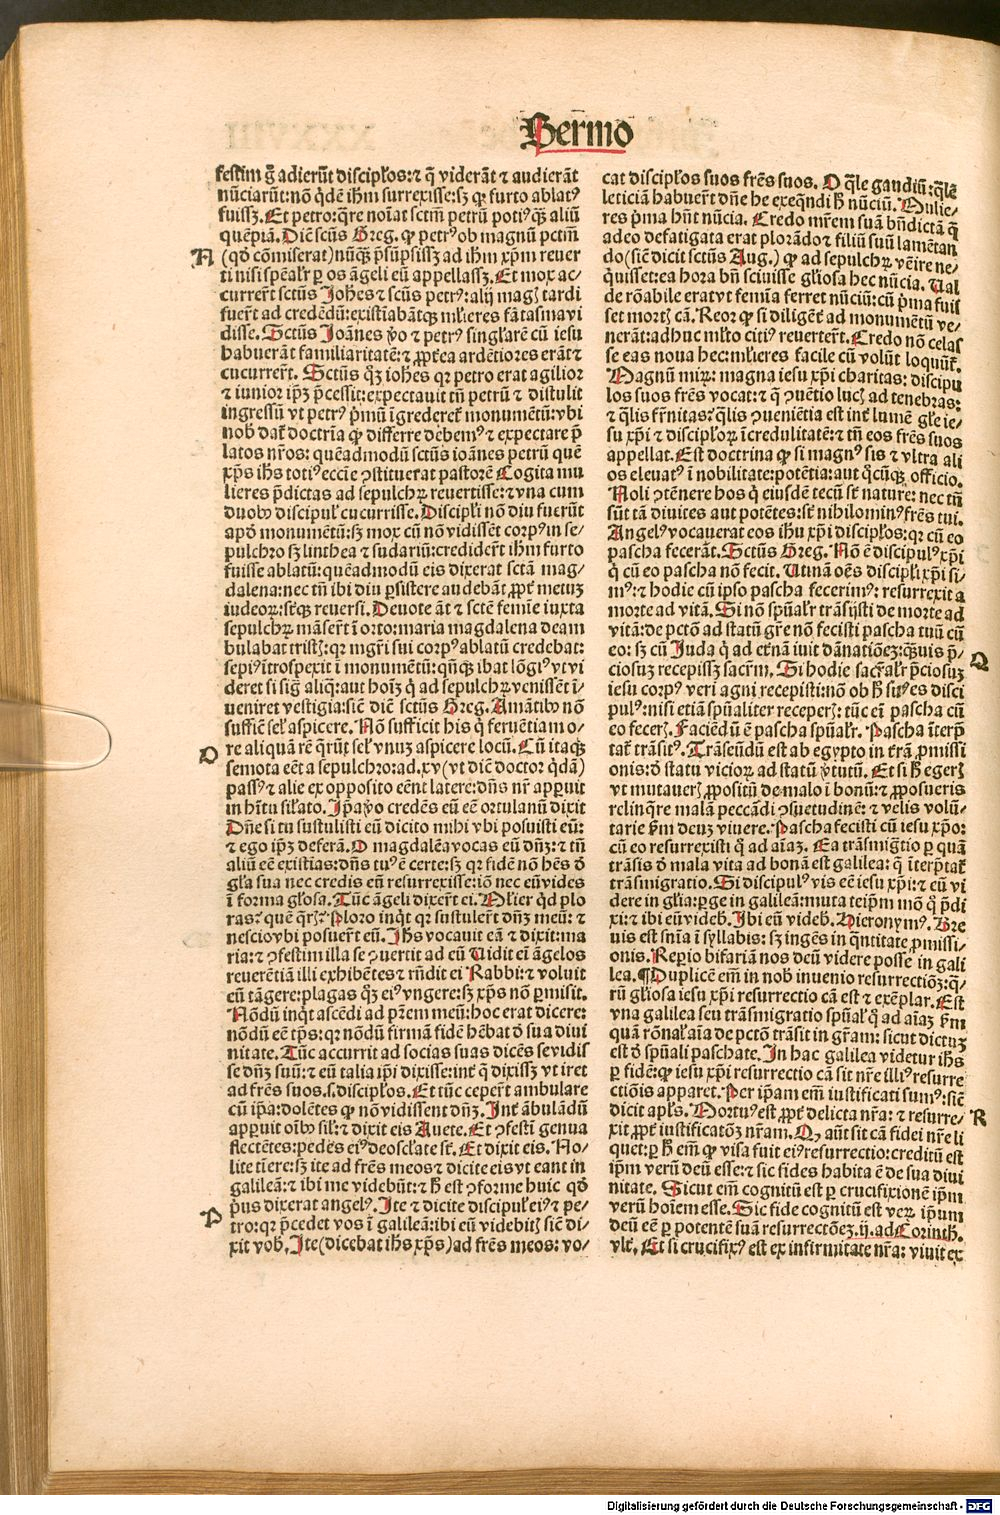 Sermo
festim g̃ adierũt discipłos: ⁊ q̃ viderãt ⁊ audierãt
nũciarũt: nõ q̃dẽ ihm surrexisse: sʒ ꝙ furto ablatꝰ
fuissʒ. Et petro: q̃re noĩat sctm̃ petrũ potiꝰqʒ aliũ
quẽpiã. Diẽ scũs Greg. ꝙ petrꝰ ob magnũ pctm̃
N
(qð cõmiserat) nũqʒ p̃sũpsissʒ ad ihm xp̃m reuer
ti nisi spẽałr ꝑ os ãgeli eũ appellassʒ. Et mox ac-
currer̃t sctũs Johẽs ⁊ scũs petrꝰ: alij magꝭ tardi
fuer̃t ad credẽdũ: existiabãtqʒ młieres fãtasmavi
disse. Sctũs Joãnes ṽo ⁊ petrꝰ singłarẽ cũ iesu
habuerãt familiaritatẽ: ⁊ ꝓpt̃ea ardẽtiores erãt ⁊
cucurrer̃t. Sctũs qʒ iohẽs qꝛ petro erat agilior
⁊ iunior ip̃ʒ p̃cessit: expectauit tñ petrũ ⁊ distulit
ingressũ vt petrꝰ p̃mũ ĩgrederet̃ monumẽtũ: vbi
nob̃ dat̃ doctrĩa ꝙ differre debemꝰ ⁊ expectare p̃
latos nr̃os: quẽadmodũ sctũs ioãnes petrũ quẽ
xp̃s ihs totiꝰ eccłie ꝯstituerat pastorẽ Cogita mu
lieres p̃dictas ad sepulchꝝ reuertisse: ⁊ vna cum
duobꝰ discipuł cucurrisse. Discipłi nõ diu fuerũt
apð monumẽtũ: sʒ mox cũ nõ vidissẽt corpꝰ in se-
pulchro sʒ linthea ⁊ sudariũ: credider̃t ihm furto
fuisse ablatũ: quẽadmodũ eis dixerat sctã mag-
dalena: nec tñ ibi diu ꝑsistere audebãt ꝓpt̃ metuʒ
iudeoꝝ: st̃eqʒ reuersi. Deuote ãt ⁊ sctẽ femĩe iuxta
sepulchꝝ mãser̃t ĩ orto: maria magdalena deam
bulabat tristꝭ: qꝛ mgr̃i sui corpꝰ ablatũ credebat:
sepiꝰ ĩtrospexit ĩ monumẽtũ: qñqʒ ibat lõgiꝰ vt vi
deret si sig̃ aliq̃: aut hoĩʒ q̃ ad sepulchꝝ venissẽt ĩ-
ueniret vestigia: siẽ diẽ sctũs Greg. Amãtibꝰ nõ
suffiẽ seł aspicere. Nõ sufficit his q̃ feruẽtiam o-
re aliquã rẽ q̃rũt seł vnuʒ aspicere locũ. Cũ itaqʒ
O
semota eẽt a sepulchro: ad .xv (vt diẽ doctor q̃dã)
passꝰ ⁊ alie ex opposito eẽnt latere: dñs nr̃ apꝑuit
in hĩtu siłato. Ip̃a ṽo credẽs eũ eẽ ortulanũ dixit
Dñe si tu sustulisti eũ dicito mihi vbi posuisti eũ:
⁊ ego ip̃ʒ deferã. O magdalẽa vocas eũ dñʒ: ⁊ tñ
aliũ eẽ existĩas: dñs tuꝰ ẽ certe: sʒ qꝛ fidẽ nõ hẽs ð
gl̃a sua nec credis eũ resurrexisse: iõ nec eũ vides
ĩ forma głosa. Tũc ãgeli dixer̃t ei. Młier qd plo
ras? quẽ q̃rꝭ? Ploro inq̃t qꝛ sustuler̃t dñʒ meũ: ⁊
nescio vbi posuer̃t eũ. Ihs vocauit eã ⁊ dixit: ma
ria: ⁊ ꝯfestim illa se ꝯuertit ad eũ Uidit ei ãgelos
reuerẽtiã illi exhibẽtes ⁊ rñdit ei Rabbi: ⁊ voluit
eũ tãgere: plagas qʒ eiꝰ vngere: sʒ xp̃s nõ ꝑmisit.
Nõdũ inq̃t ascẽdi ad pr̃em meũ: hoc erat dicere:
nõdũ eẽ tp̃s: qꝛ nõdũ firmã fidẽ hẽbat ð sua diui
nitate. Tũc accurrit ad socias suas dicẽs se vidis
se dñʒ suũ: ⁊ eũ talia ip̃i dixisse: int̃ q̃ dixissʒ vt iret
ad fres suos .s. discipłos. Et tũc ceper̃t ambulare
cũ ip̃a: dolẽtes ꝙ nõ vidissent dñʒ. Int̃ ãbulãdũ
apꝑuit oĩbꝰ sił: ⁊ dixit eis Auete. Et ꝯfestĩ genua
flectẽtes: pedes eiꝰ deoscłate st̃. Et dixit eis. No-
lite tĩere: sʒ ite ad frẽs meos ⁊ dicite eis vt eant in
galileã: ⁊ ibi me videbũt: ⁊ h̃ est ꝯforme huic qð
p̃us dixerat angelꝰ. Ite ⁊ dicite discipuł eiꝰ ⁊ pe-
P
tro: qꝛ p̃cedet vos ĩ galileã: ibi eũ videbitꝭ siẽ di-
xit vob̃. Ite (dicebat ihs xp̃s) ad frẽs meos: vo-
cat discipłos suos frẽs suos. O q̃le gaudiũ: q̃le
leticiã habuer̃t dñe he exeq̃ndi h̃ nũciũ. Mulie-
res p̃ma hñt nũcia. Credo mr̃em suã bñdictã q̃
adeo defatigata erat plorãdo ⁊ filiũ suũ lamẽtan
do (siẽ dicit sctũs Aug.) ꝙ ad sepulchꝝ vẽire ne-
q̃uisset: ea hora bñ sciuisse głiosa hec nũcia. Ual
de rõabile erat vt femĩa ferret nũciũ: cũ p̃ma fuis
set mortꝭ cã. Reor ꝙ si diligẽt̃ ad monumẽtũ ve-
nerãt: adhuc młto citiꝰ reuerter̃t. Credo nõ celas
se eas noua hec: młieres facile cũ volũt loquũt̃.
Magnũ miꝝ: magna iesu xp̃i charitas: discipu
los suos frẽs vocat: ⁊ q̃ ꝯuẽtio lucꝭ ad tenebras:
⁊ q̃lis fr̃nitas? q̃lis ꝯueniẽtia est int̃ lumẽ głe ie-
su xp̃i ⁊ discipłoꝝ ĩcredulitatẽ: ⁊ tñ eos frẽs suos
appellat. Est doctrina ꝙ si magnꝰ sis ⁊ vltra ali
os eleuatꝰ ĩ nobilitate: potẽtia: aut q̃cũqʒ officio.
Noli ꝯtẽnere hos q̃ eiusdẽ tecũ st̃ nature: nec tñ
sũt tã diuites aut potẽtes: st̃ nihilominꝰ frẽs tui.
Angelꝰ vocauerat eos ihu xp̃i discipłos: qꝛ cũ eo
pascha fecerãt. Sctũs Greg. Nõ ẽ discipulꝰ xp̃i
q̃ cũ eo pascha nõ fecit. Utinã oẽs discipłi xp̃i si-
mꝰ: ⁊ hodie cũ ipso pascha fecerimꝰ: resurrexit a
morte ad vitã. Si nõ spũałr trãsijsti de morte ad
vitã: de pctõ ad statũ gr̃e nõ fecisti pascha tuũ cũ
eo: sʒ cũ Juda q̃ ad et̃nã iuit dãnatiõeʒ: qʒuis p̃-
ciosuʒ recepissʒ sacr̃m. Si hodie sacr̃ałr p̃ciosuʒ
Q
iesu corpꝰ veri agni recepisti: nõ ob h̃ siꝰ es disci
pulꝰ: nisi etiã spũaliter receperꝭ: tũc eĩ pascha cũ
eo fecerꝭ. Faciẽdũ ẽ pascha spũałr. Pascha ĩterp̃
tat̃ trãsitꝰ. Trãseũdũ est ab egypto in tr̃ã ꝓmissi
onis: ð statu vicioꝝ ad statũ ṽtutũ. Et si h̃ egerꝭ
vt mutauerꝭ ꝓpositũ de malo ĩ bonũ: ⁊ ꝓposueris
relinq̃re malã peccãdi ꝯsuetudinẽ: ⁊ velis volũ-
tarie ßm deuʒ viuere. Pascha fecisti cũ iesu xp̃o:
cũ eo resurrexisti q̃ ad aĩaʒ. Ea trãsmig̃tio ꝑ quã
trãsis ð mala vita ad bonã est galilea: q̃ ĩterp̃tat̃
trãsmigratio. Si discipulꝰ vis eẽ iesu xp̃i: ⁊ eũ vi
dere in głia: ꝑge in galileã: muta teip̃m mõ q̃ p̃di
xi: ⁊ ibi eũ videb̃. Ibi eũ videb̃. Hieronymꝰ. Bre
uis est snĩa ĩ syllabis: sʒ ingẽs in q̃ntitate ꝓmissi-
onis. Reꝑio bifariã nos deũ videre posse in gali
lea. ¶ Duplicẽ em̃ in nob̃ inuenio resurrectiõʒ: q̃-
rũ głiosa iesu xp̃i resurrectio cã est ⁊ exẽplar. Est
vna galilea seu trãsmigratio spũał q̃ ad aĩaʒ ßm
quã rõnał aĩa de pctõ trãsit in gr̃am: sicut dictuʒ
est ð spũali paschate. In hac galilea videtur ihs
ꝑ fidẽ: ꝙ iesu xp̃i resurrectio cã sit nr̃e illiꝰ resurre
ctiõis apparet. Per ip̃am em̃ iustificati sumꝰ: siẽ
dicit apłs. Mortuꝰ est ꝓpt̃ delicta nr̃a: ⁊ resurre-
R
xit ꝓpt̃ iustificatõʒ nr̃am. Qꝙ aũt sit cã fidei nr̃e li
quet: ꝑ h̃ em̃ ꝙ visa fuit eiꝰ resurrectio: creditũ est
ip̃m verũ deũ esse: ⁊ sic fides habita ẽ de sua diui
nitate. Sicut em̃ cognitũ est ꝑ crucifixionẽ ip̃m
verũ hoĩem esse. Sic fide cognitũ est veꝝ ip̃um
deũ eẽ ꝑ potentẽ suã resurrectõeʒ .ij. ad Corinth.
vlt̃. Et si crucifixꝰ est ex infirmitate nr̃a: viuit ex
Digitalisierung gefördert durch die Deutsche Forschungsgemeinschaft - DFG